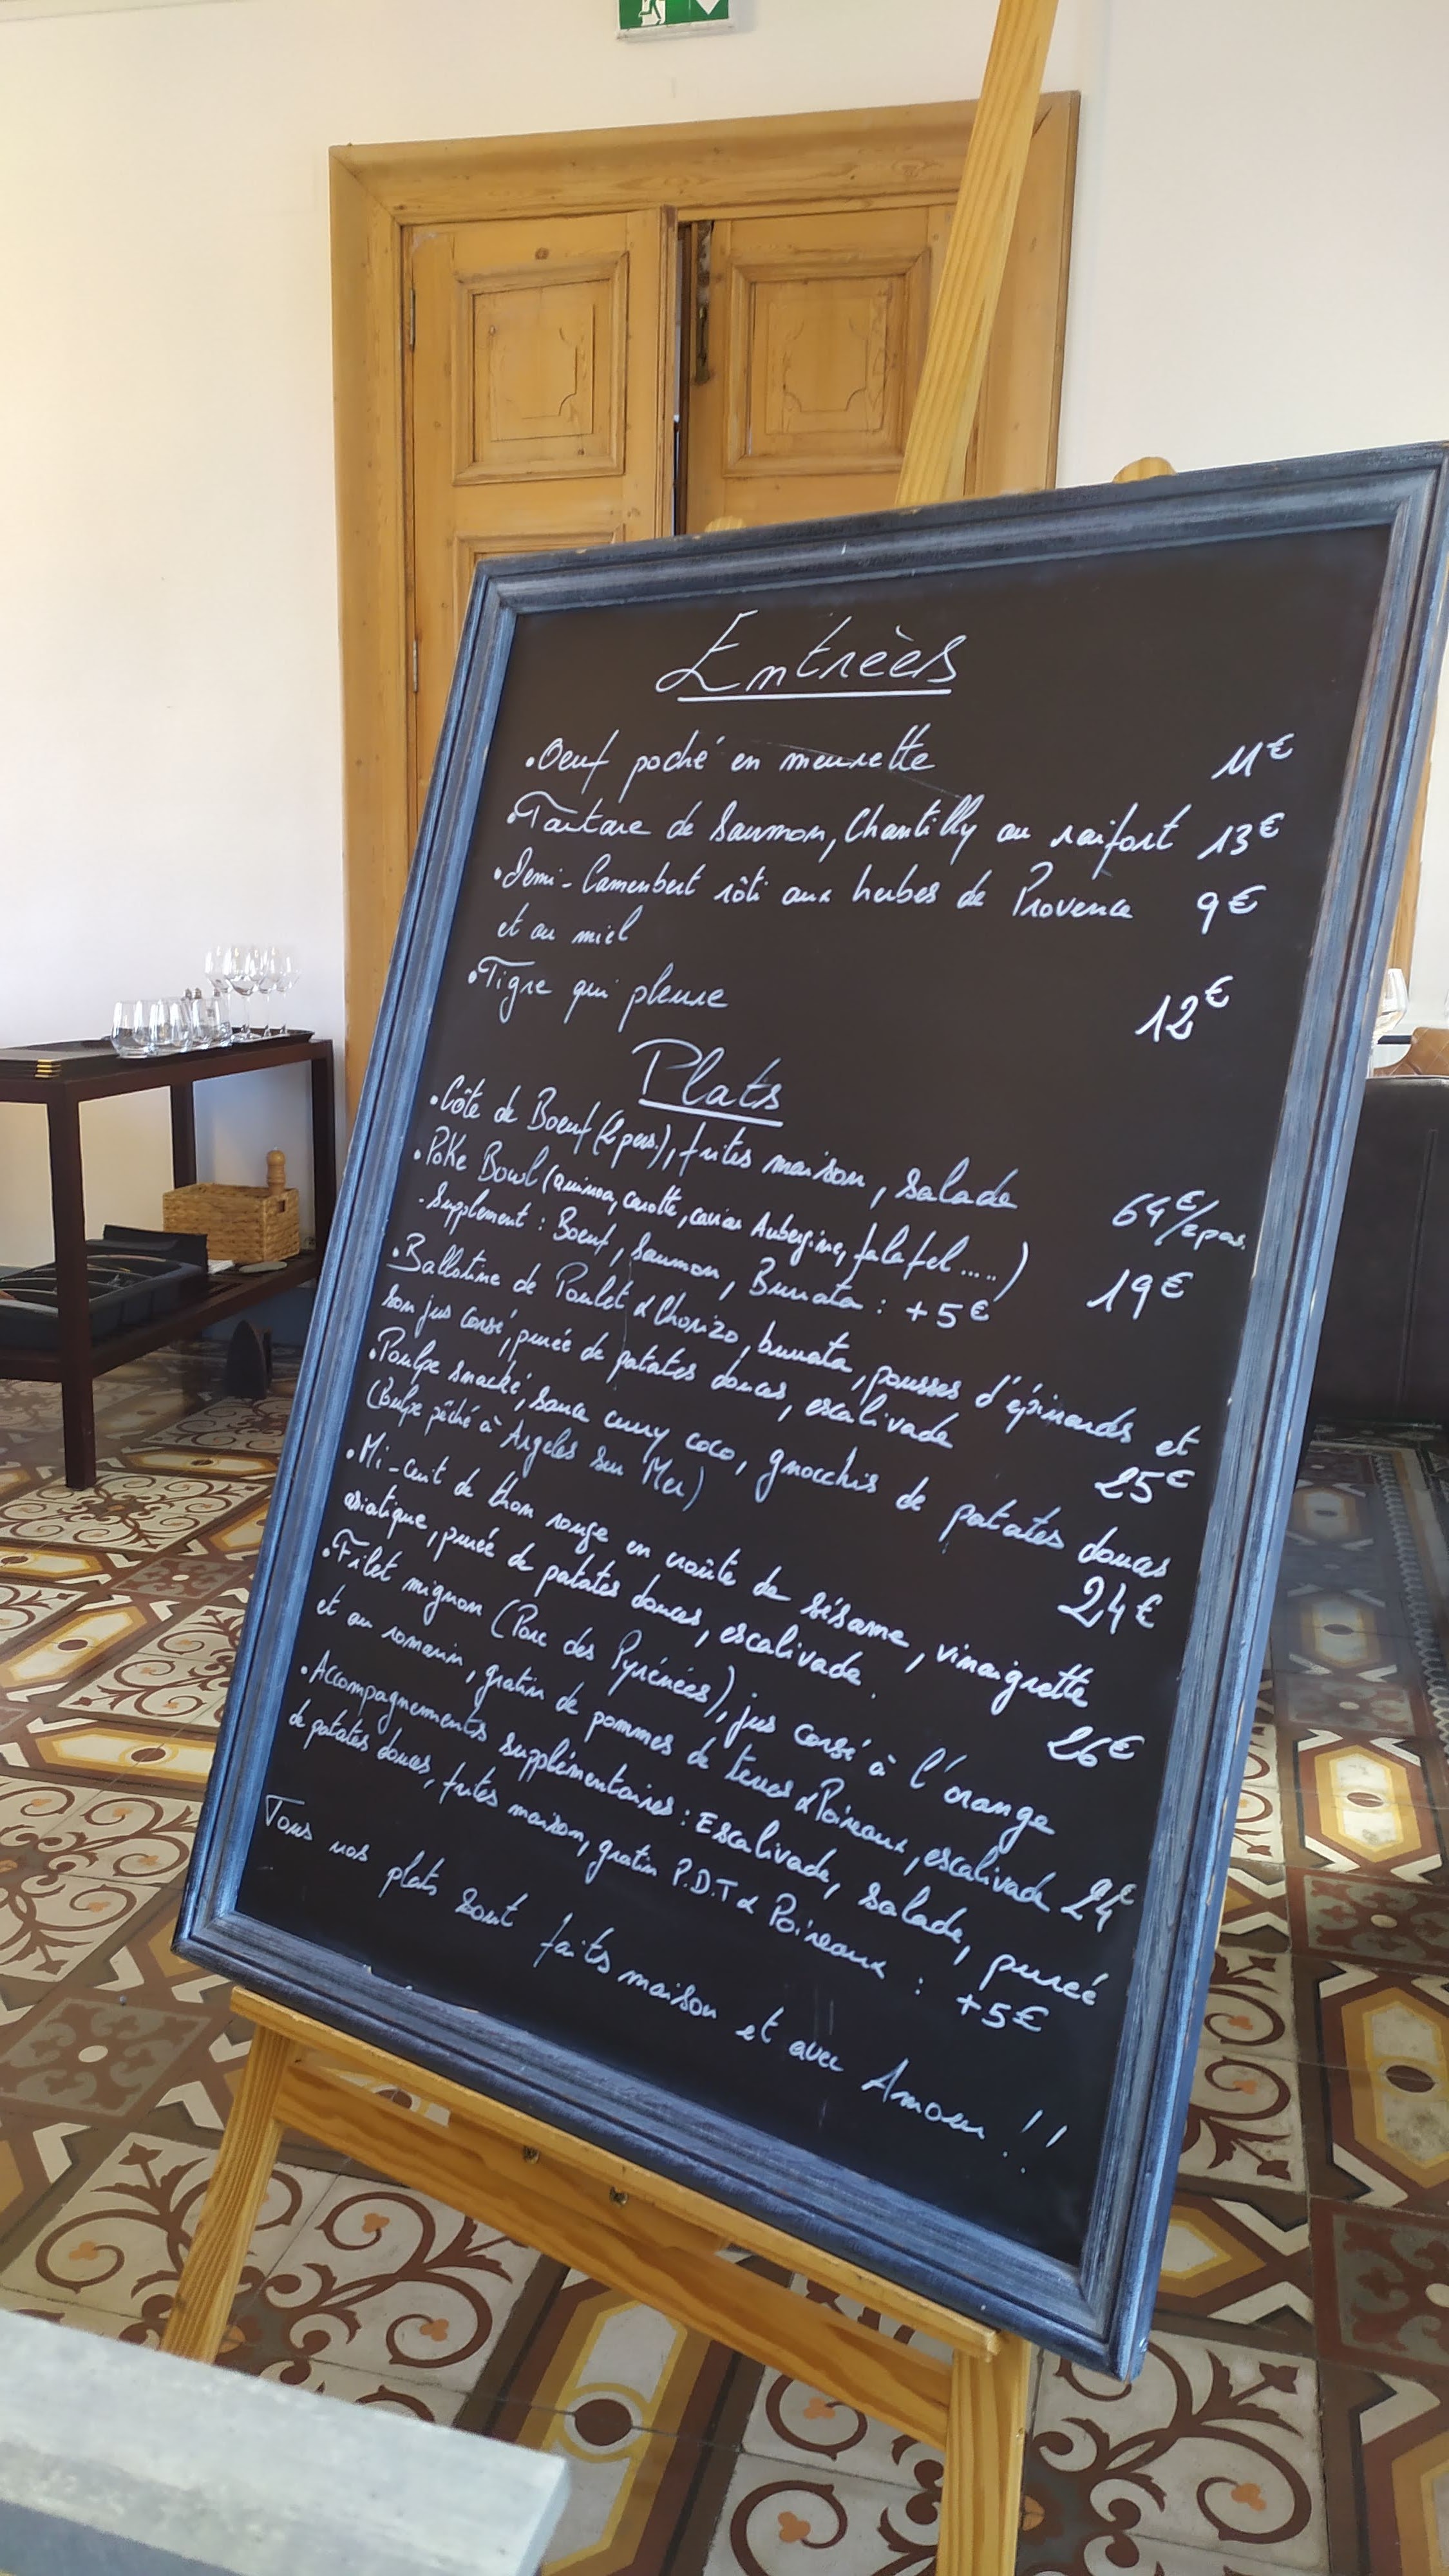 Entrèes
.Oeuf poché en meurette 11€
.Tartare de Saumon, Chantilly au raifort 13€
.Demi-Camenbert rôti aux herbes de Provence 9€
et au miel
.Tigre qui pleure 12€
Plats
.Côte de Boeuf (2 pers.), frites maison, salade 64€/2 pers.
.Poke Bowl (quinoa, carotte, caviar Aubergine, falafel.....) 19€
-Supplement : Boeuf, Saumon, Burrata : +5€
.Ballotine de Poulet & Chorizo, burrata, pousses d'épinards et
son jus corsé, purée de patates douces, escalivade 25€
.Poulpe snacké, sauce curry coco, gnocchis de patates douces
(Poulpe pêché à Argeles sur Mer) 24€
.Mi-cuit de thon rouge en croûte de sésame, vinaigrette
asiatique, purée de patates douces, escalivade. 26€
.Filet mignon (Porc des Pyrénées), jus corsé à l'orange
et au romarin, gratin de pommes de terres & Poireaux, escalivade 24€
.Accompagnements supplémentaires : Escalivade, salade, purée
de patates douces, frites maison, gratin P.D.T & Poireaux : +5€
Tous nos plats sont faits maison et avec Amour !!